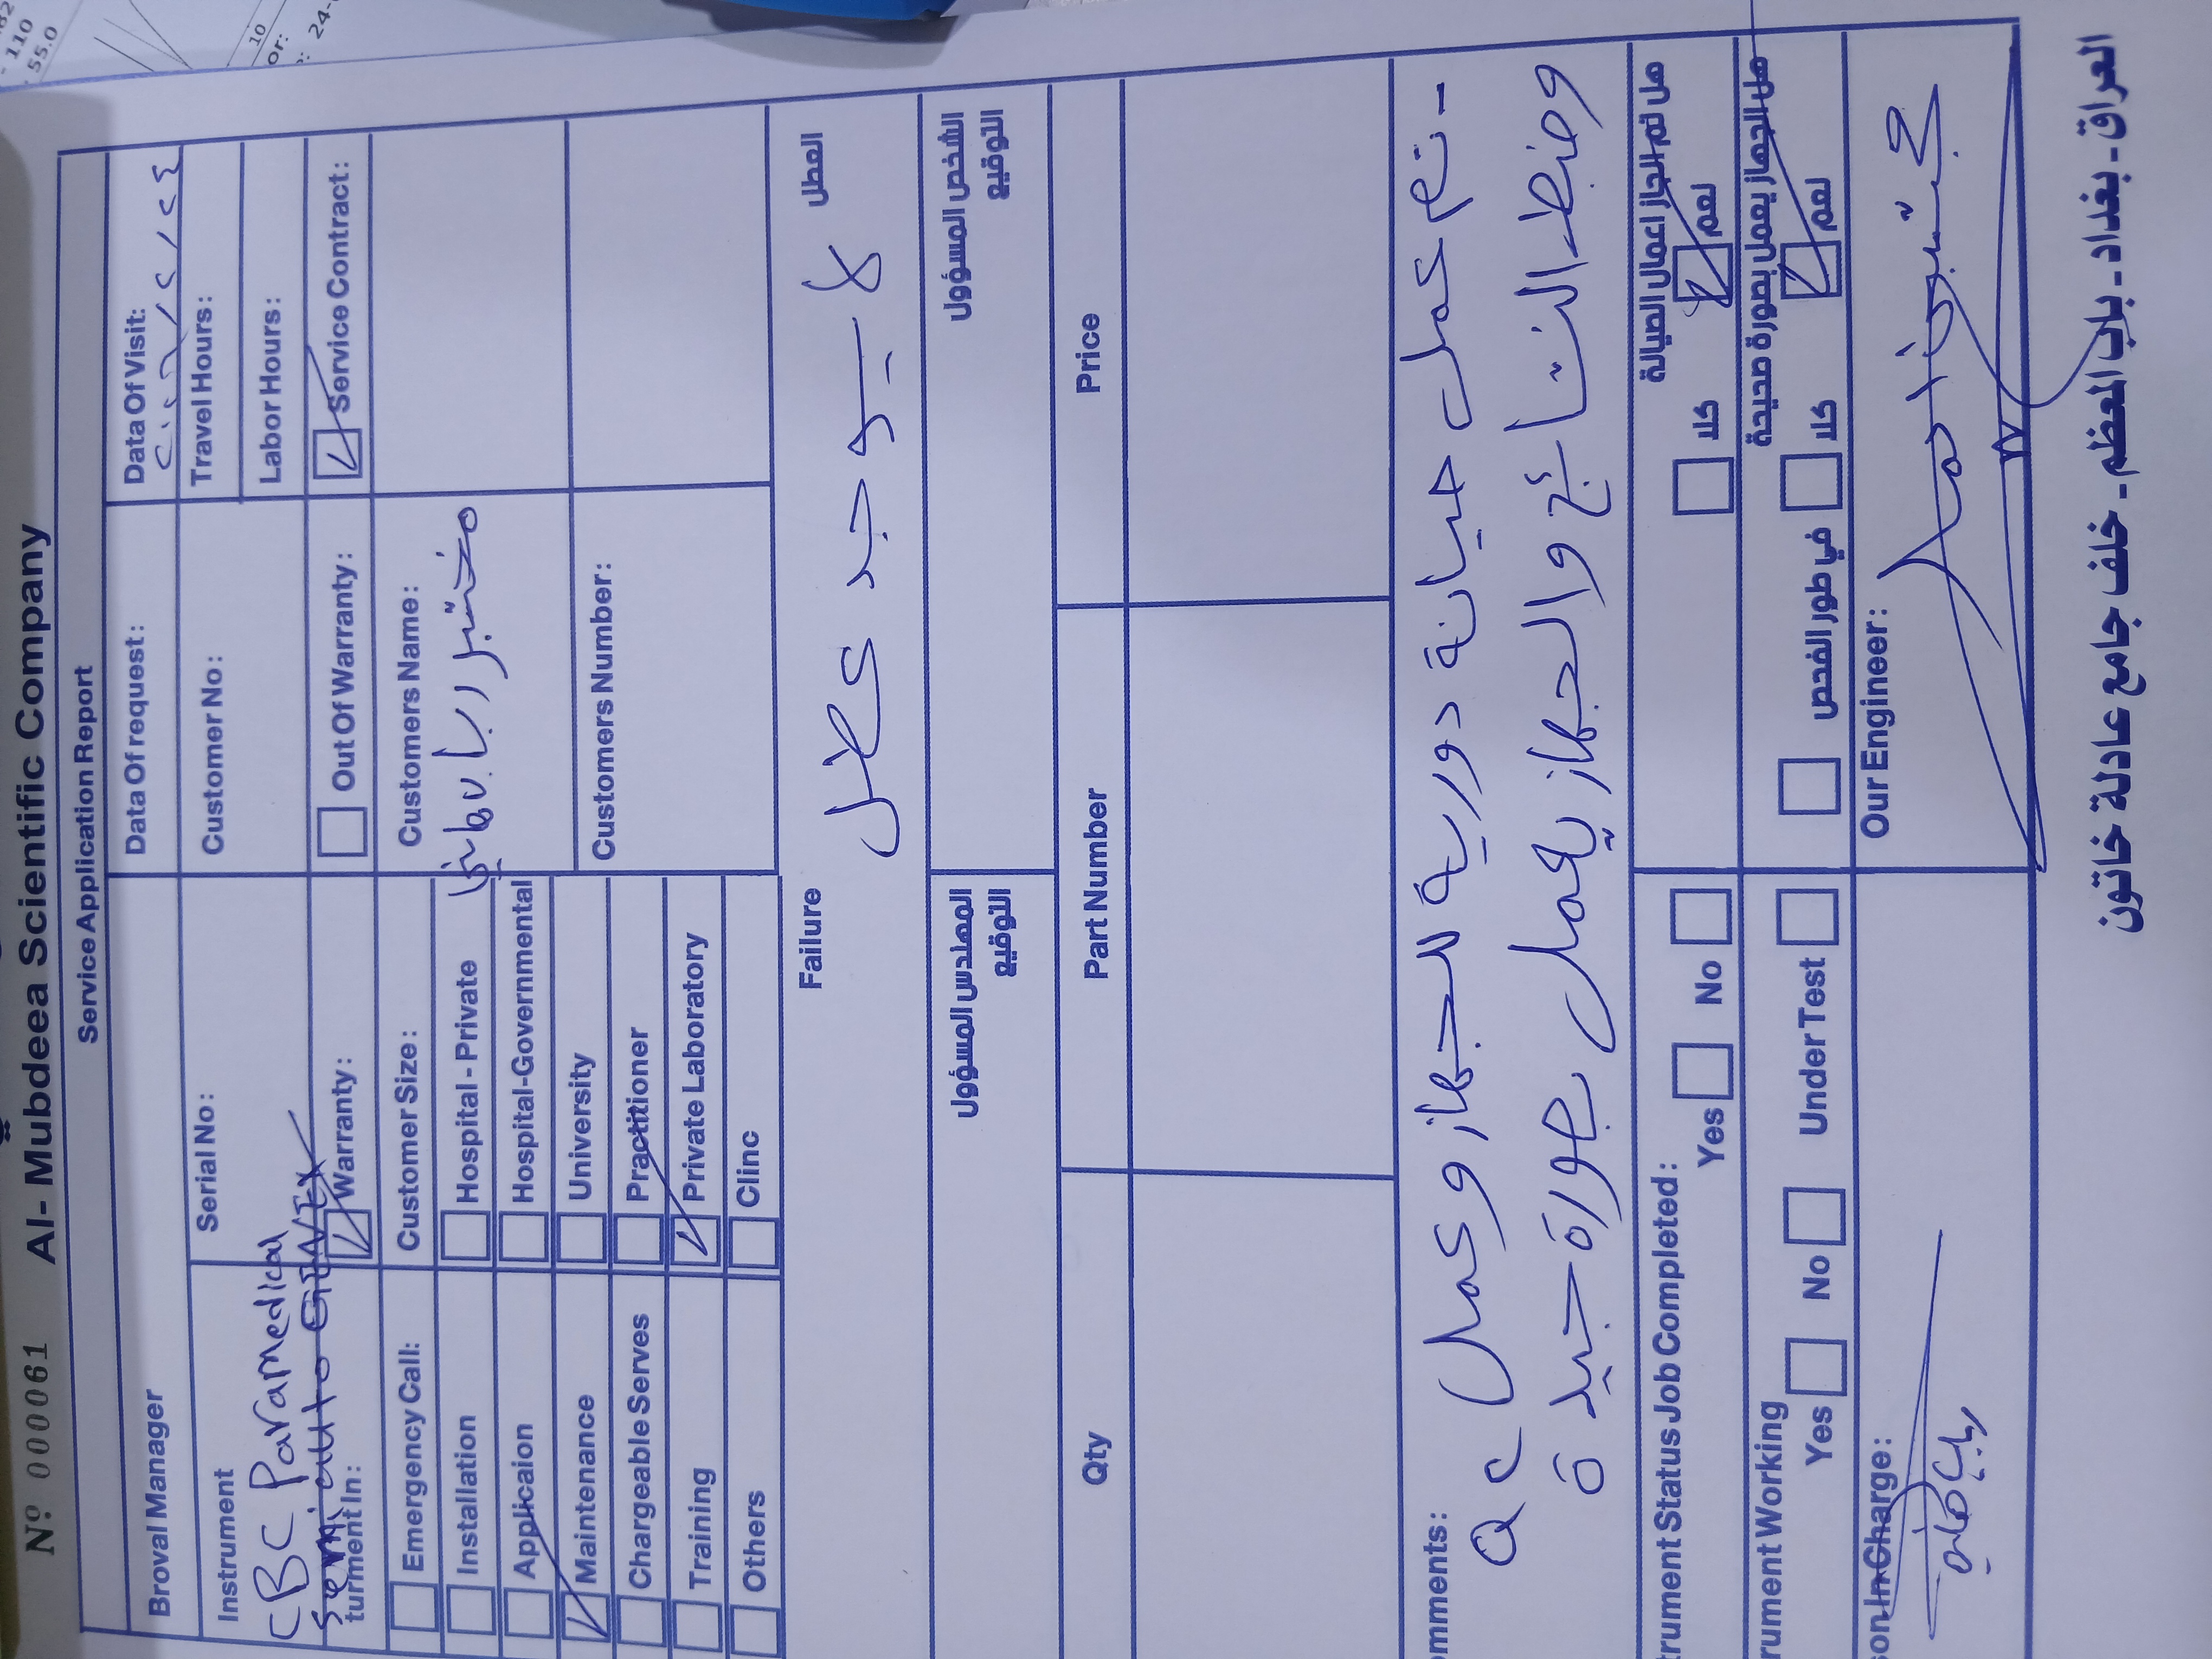 82
- 110
- 55.0
10
or:
: 24-
Nº 000061 Al- Mubdeea Scientific Company
Service Application Report
Broval Manager
Data Of request:
Data Of Visit:
Instrument
Serial No:
Customer No:
Travel Hours:
CBC Paramedical
Semi auto GENEX
Labor Hours:
turment In:
Warranty:
Out Of Warranty:
Service Contract:
Emergency Call:
Customer Size:
Customers Name:
مختبر
Installation
Hospital - Private
Applicaion
Hospital-Governmental
Maintenance
University
Customers Number:
Chargeable Serves
Practitioner
Training
Private Laboratory
Others
Clinc
Failure
العطل
لا يوجد عطل
المهندس المسؤول
التوقيع
الشخص المسؤول
التوقيع
Qty
Part Number
Price
mments:
- تم عمل صيانة دورية للجهاز وعمل QC
وضبط النتائج والجهاز يعمل بصورة جيدة
trument Status Job Completed:
Yes
No
هل تم انجاز اعمال الصيانة
كلا
نعم
rument Working
Yes
No
Under Test
هل الجهاز يعمل بصورة صحيحة
في طور الفحص
كلا
نعم
son In Charge:
Our Engineer:
العراق - بغداد - باب المعظم - خلف جامع عادلة خاتون